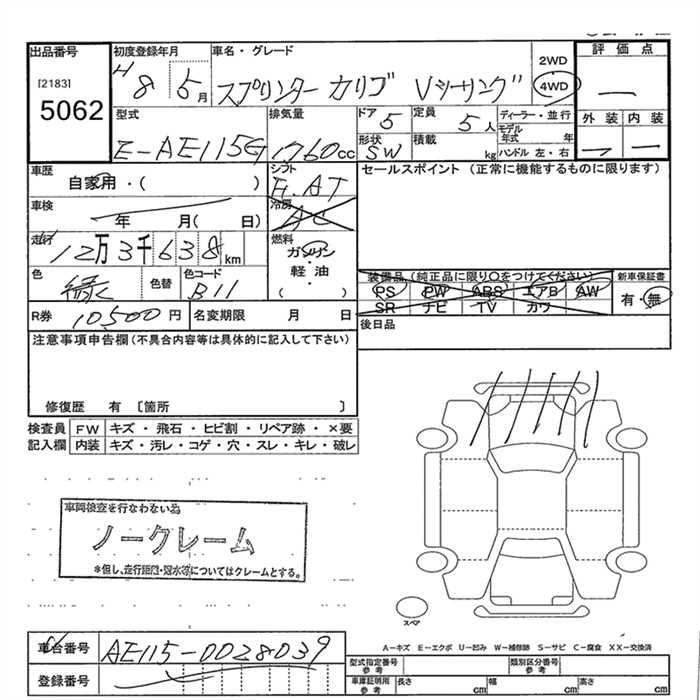 出品番号 初度登録年月 車名・グレード 2WD 評価点
[2183] H8 5月 スプリンター カリブ Vツーリング 4WD ー
5062
型式 排気量 ドア 5 定員 5人 ディーラー・並行 外装 内装
E-AE115G 1760cc 形状 SW 積載 kg モデル年式 年 ー ー
ハンドル 左・右
車歴 シフト セールスポイント (正常に機能するものに限ります)
自家用・( ) F.AT
車検 冷房
年 月( 日) AC
走行 燃料
12万3千638km ガソリン・軽油・( )
色 色替 色コード 装備品(純正品に限り○をつけてください) 新車保証書
緑 B11 PS PW ABS エアB AW 有・無
SR ナビ TV カワ
R券 10500円 名変期限 月 日 後日品
注意事項申告欄(不具合内容等は具体的に記入して下さい)
修復歴 有 〔箇所 〕
検査員 FW キズ・飛石・ヒビ割・リペア跡・×要
記入欄 内装 キズ・汚レ・コゲ・穴・スレ・キレ・破レ
車両検査を行なわない為
ノークレーム
*但し、走行距離・冠水等についてはクレームとする。
スペア
A-キズ E-エクボ U-凹み W-補修跡 S-サビ C-腐食 XX-交換済
車台番号 AE115-0028039 型式指定番号 参考 類別区分番号 参考
登録番号 車庫証明用 参考 長さ cm 幅 cm 高さ cm